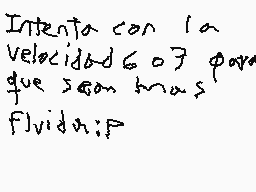 Intenta con la
velocidad 6 o 7 para
que sean mas
fluida:P